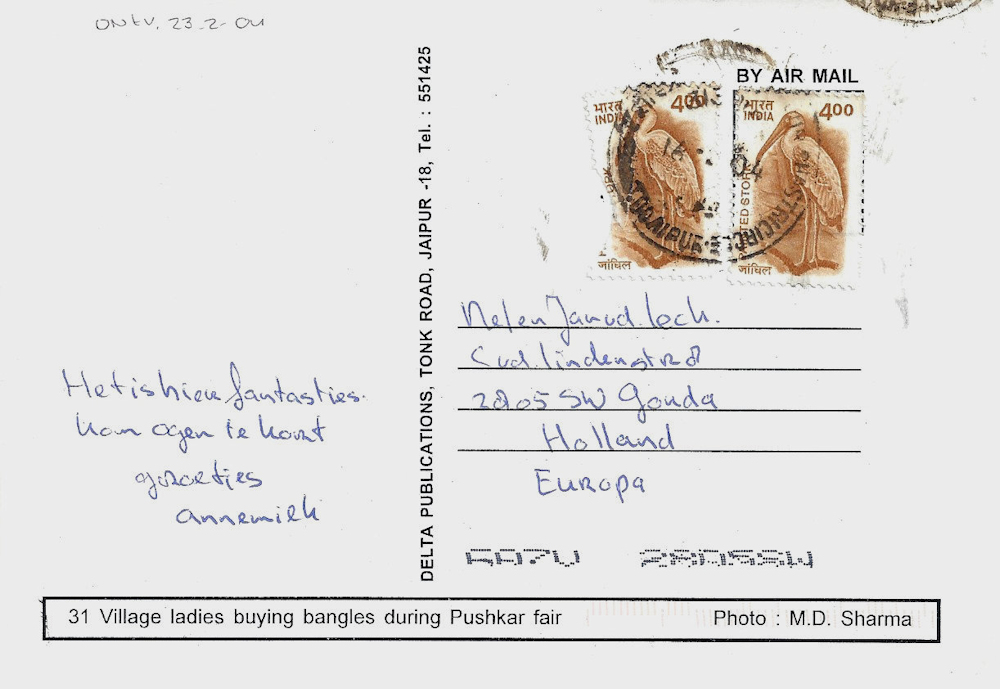 ontv. 23-2-04
BY AIR MAIL
भारत
INDIA
400
जांघिल
भारत
INDIA
400
PAINTED STORK
जांघिल
UDAIPUR
16
04
DELTA PUBLICATIONS, TONK ROAD, JAIPUR -18, Tel. : 551425
Het is hier fantasties.
kom ogen te kort
groeties
annemiek
2805 SW Gouda
Holland
Europa
2805SW
31 Village ladies buying bangles during Pushkar fair
Photo : M.D. Sharma